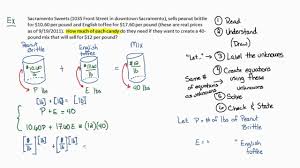 Ex
Sacramento Sweets (1035 Front Street in downtown Sacramento), sells peanut brittle
for $10.60 per pound and English toffee for $17.60 per pound (these are real prices
as of 9/19/2011). How much of each candy do they need if they want to create a 40-
pound mix that will sell for $12 per pound?
Peanut Brittle
English toffee
Mix
P lbs
E lbs
P + E = 40
[lb] [lb] [lb]
10.60P + 17.60E = (12)(40)
[$/lb][lb] + [$/lb][lb] =
① Read
② Understand
(Draw)
"Let.." → ③ Label the unknowns
Same # of equations as unknowns
④ Create equations using these unknowns
⑤ Solve
⑥ Check & State
Let P = # of lbs of Peanut Brittle
E = " English toffee